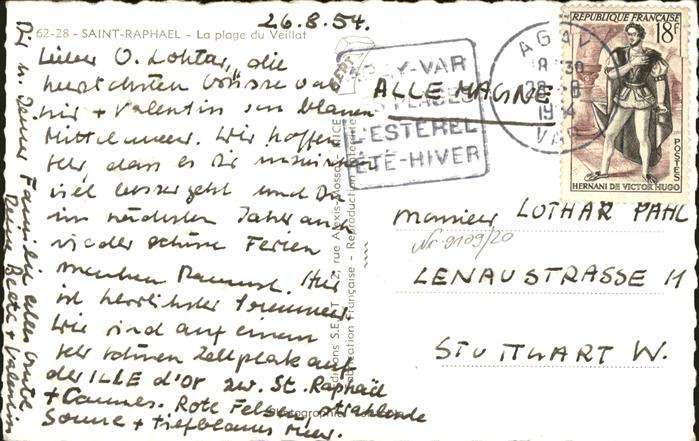 26.8.54.
62-28 - SAINT-RAPHAEL - La plage du Veillat
Lieber O. Lothar, die
herzlichsten Grüsse von
mir + Valentin vom blauen
Mittelmeer. Wir hoffen
sehr, dass es Dir inzwischen
viel besser geht und Du
im nächsten Jahr auch
wieder schöne Ferien
machen kannst. Hier
ist herrlichster Sommer.
Wir sind auf einem
sehr schönen Zeltplatz auf
der ILLE d'OR zw. St. Raphaël
+ Cannes. Rote Felsen, strahlende
Sonne + tiefblaues Meer.
Dir u. Deiner Familie alles Gute
Deine Beate + Valentin
AGAY-VAR
SES PLAGES
L'ESTEREL
ÉTÉ-HIVER
ALLEMAGNE
AGAY
VAR
RÉPUBLIQUE FRANÇAISE
18F
POSTES
HERNANI DE VICTOR HUGO
Monsieur LOTHAR PAHL
Nr. 9109/20
LENAUSTRASSE 11
STUTTGART W.
Éditions S.E.P.T.
rue Alexis Mossa
NICE
Fabrication Française - Reproduction
Photographie